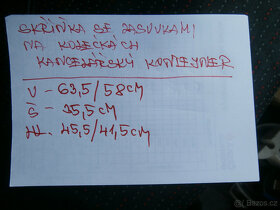 SKŘÍŇKA SE ZÁSUVKAMI
NA KOLEČKÁCH
KANCELÁŘSKÝ KONTEJNER
V - 63,5/58CM
Š - 35,5CM
HL. 45,5/41,5CM
Bazos.cz